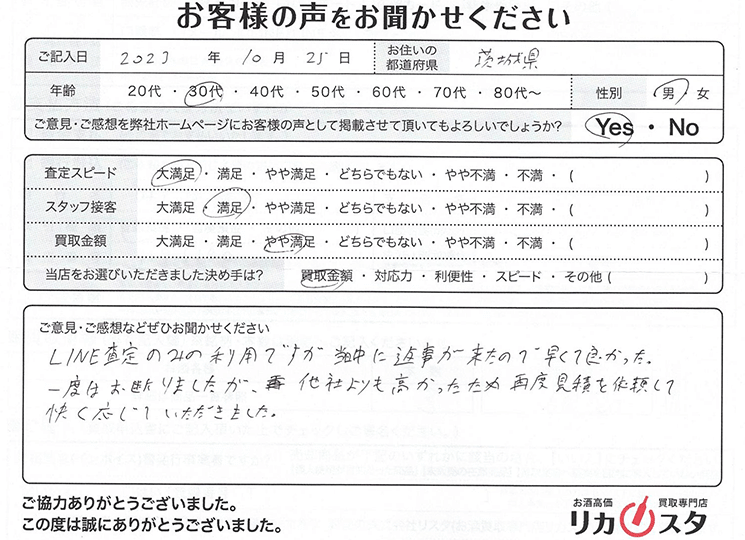 お客様の声をお聞かせください
ご記入日 2023 年 10 月 25 日 お住いの都道府県 茨城県
年齢 20代 ・ 30代 ・ 40代 ・ 50代 ・ 60代 ・ 70代 ・ 80代～ 性別 男 ・ 女
ご意見・ご感想を弊社ホームページにお客様の声として掲載させて頂いてもよろしいでしょうか? Yes ・ No
査定スピード 大満足 ・ 満足 ・ やや満足 ・ どちらでもない ・ やや不満 ・ 不満 ・ ( )
スタッフ接客 大満足 ・ 満足 ・ やや満足 ・ どちらでもない ・ やや不満 ・ 不満 ・ ( )
買取金額 大満足 ・ 満足 ・ やや満足 ・ どちらでもない ・ やや不満 ・ 不満 ・ ( )
当店をお選びいただきました決め手は? 買取金額 ・ 対応力 ・ 利便性 ・ スピード ・ その他 ( )
ご意見・ご感想などぜひお聞かせください
LINE査定のみの利用ですが 当中に返事が来たので早くて良かった。
一度はお断りましたが、他社よりも高かったため 再度見積を依頼して
快く応じていただきました。
ご協力ありがとうございました。
この度は誠にありがとうございました。
お酒高価 買取専門店
リカスタ